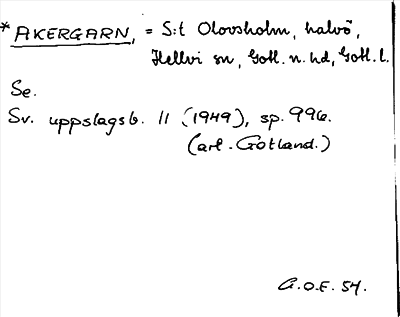 * AKERGARN, = S:t Olovsholm, halvö,
Hellvi sn, Gotl. n. hd, Gotl. l.
Se.
Sv. uppslagsb. 11 (1949), sp. 996.
(art. Gotland.)
G.O.E. 54.